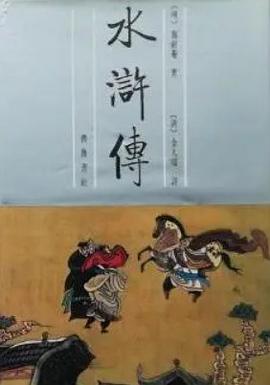 [明] 施耐庵 著
[清] 金人瑞 評
水滸傳
齊魯書社